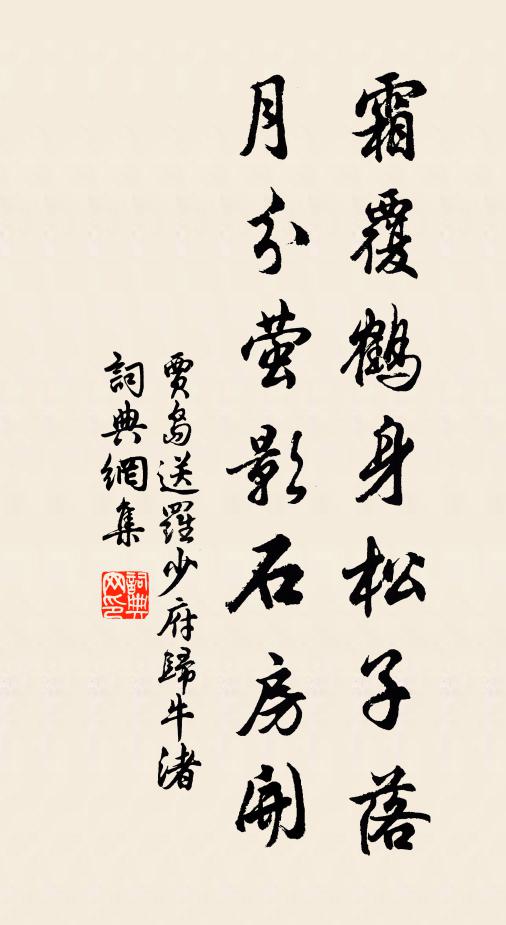 霜覆鶴身松子落
月分萤影石房開
賈島送羅少府歸牛渚
詞典網集
詞典网印